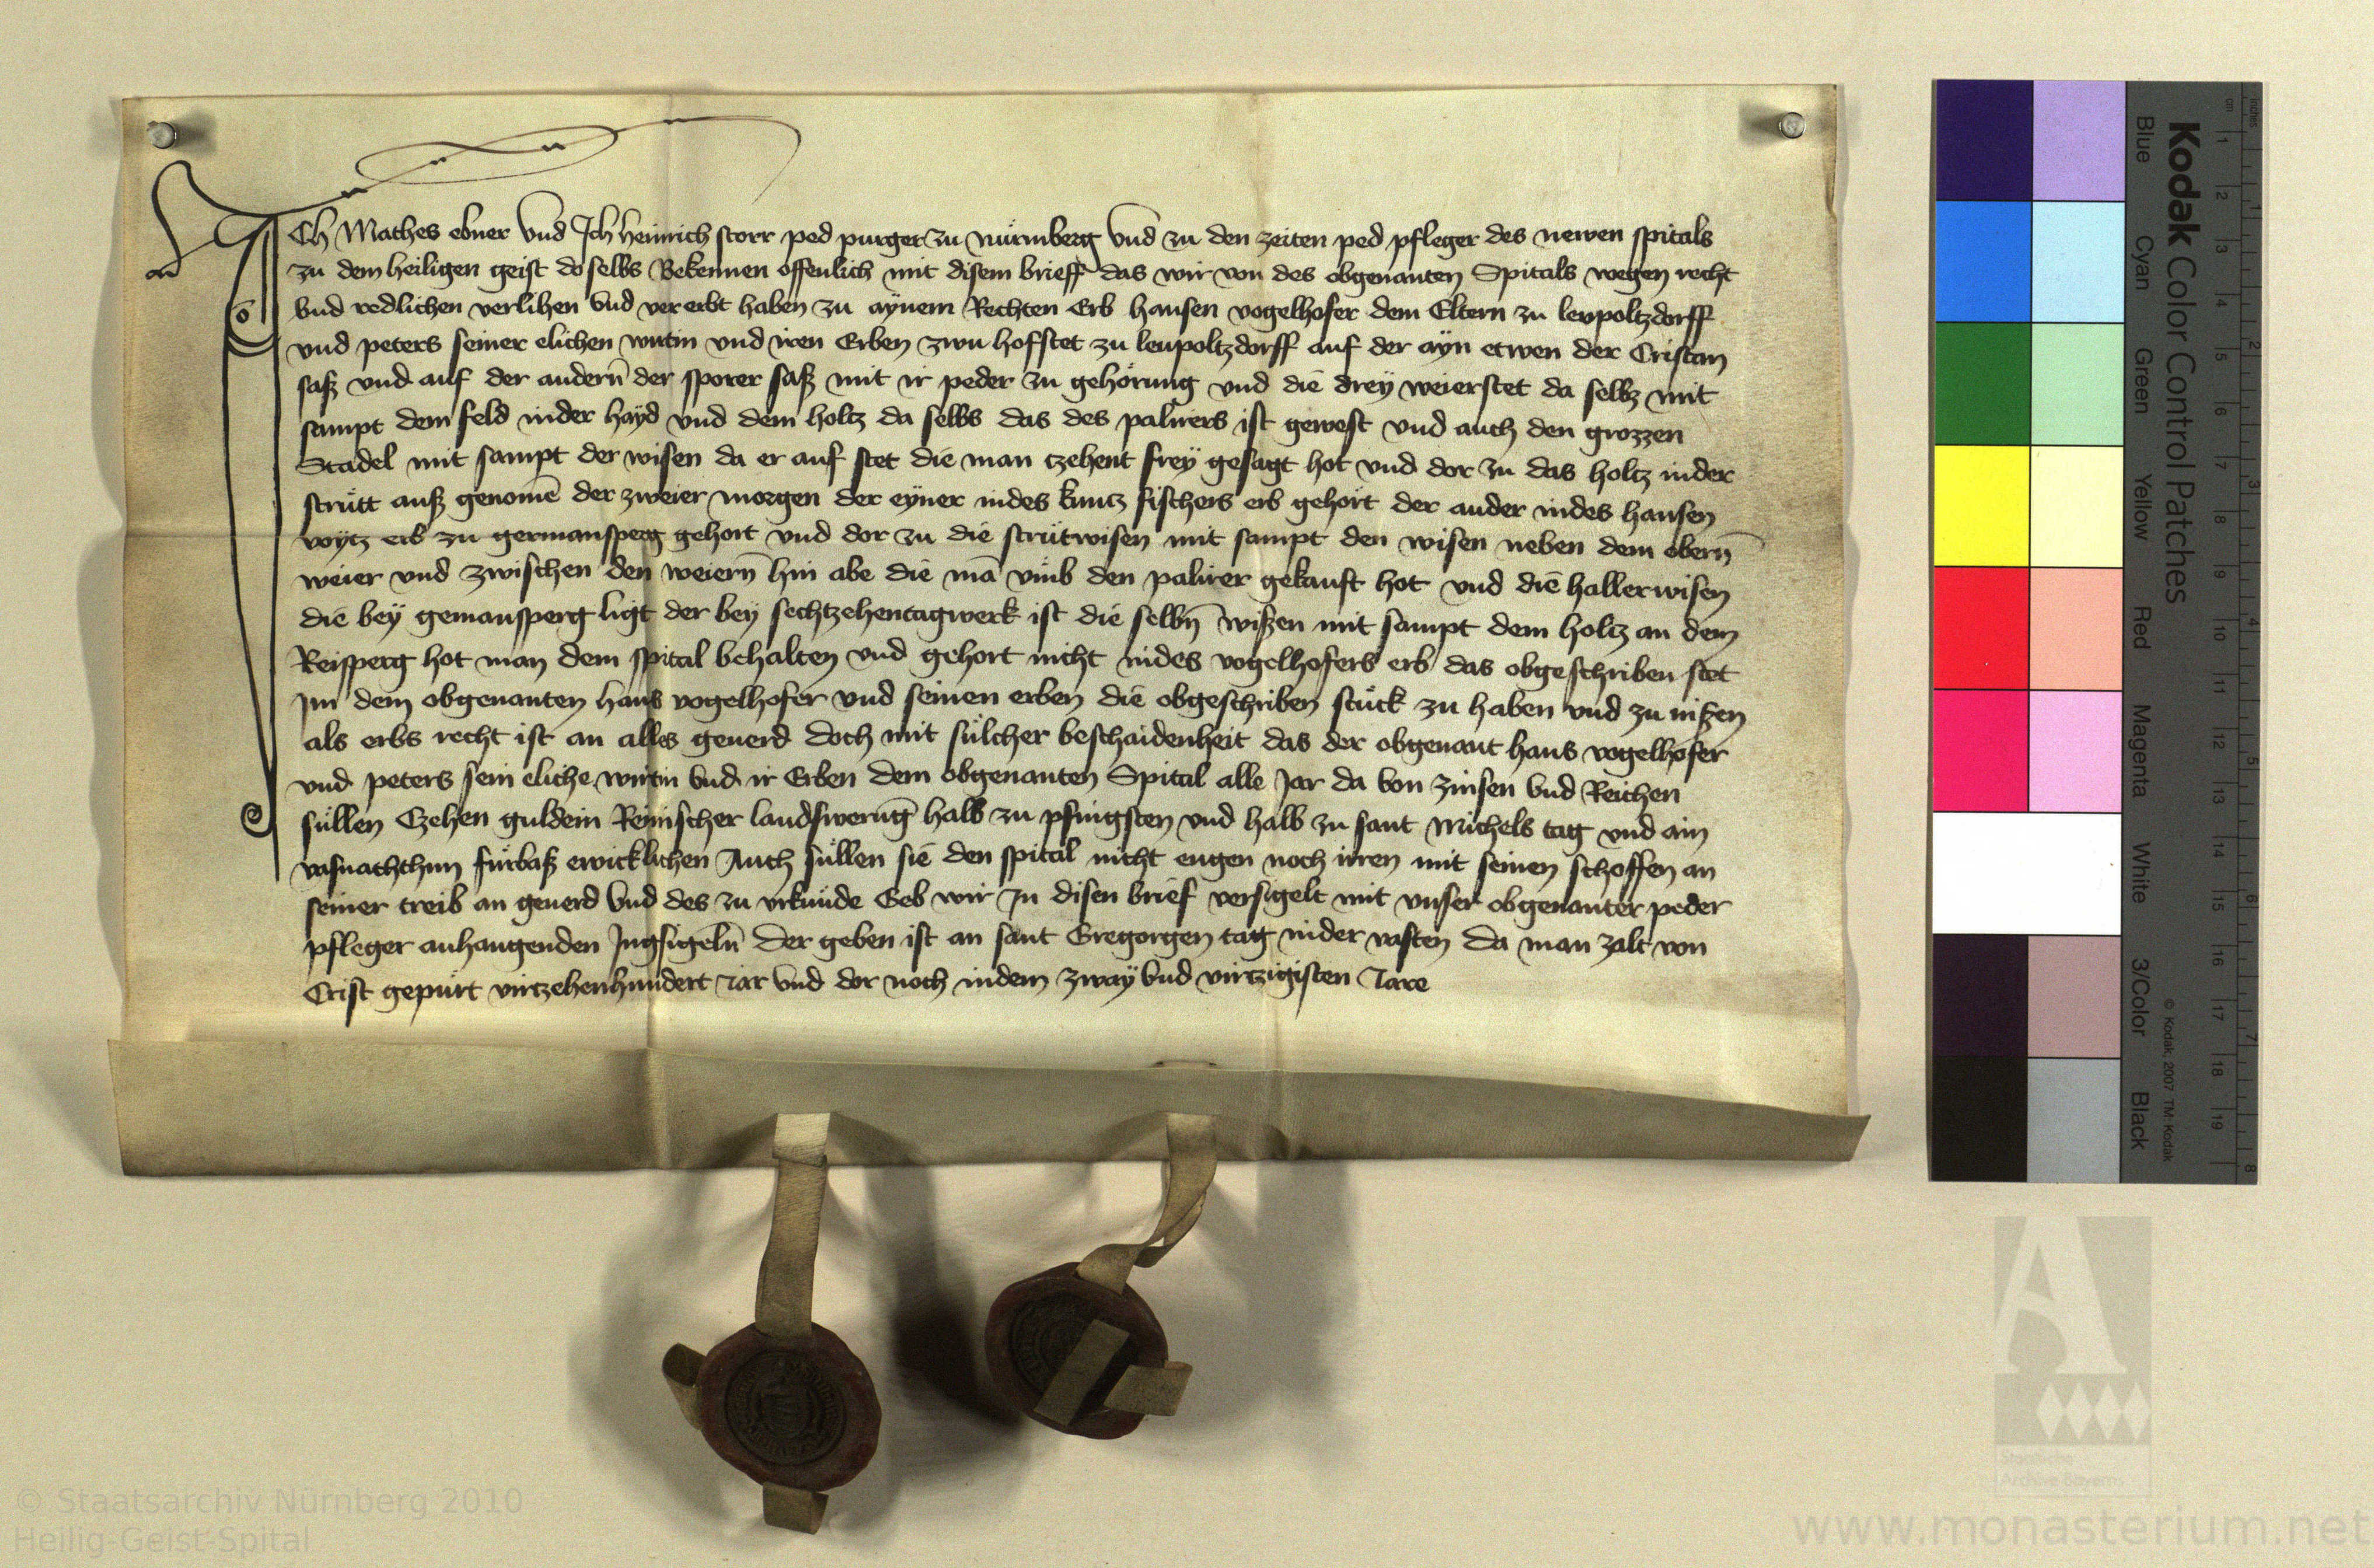 ICh Mathes ebner Vnd Jch heinrich storr ped purger zu nürmberg Vnd zu den zeiten ped pfleger des newen spitals
zu dem heiligen geist do selbs Bekennen offenlich mit disem brieff das wir von des obgenanten Spitals wegen recht
vnd redlichen verlihen vnd vererbt haben zu aynem Rechten Erb hansen vogelhofer dem Eltern zu lewpoltzdorff
vnd peters seiner elichen wirtin vnd iren Erben zwu hofstet zu lewpoltzdorff auf der ayn etwen der Cristan
saß vnd auf der andern̄ der sporer saß mit ir peder zu gehörung vnd die drey weierstet da selbz mit
sampt dem feld inder hayd vnd dem holtz da selbs das des palirers ist gewest vnd auch den grozzen
Stadel mit sampt der wisen da er auf stet die man czehent frey gesagt hot vnd dor zu das holtz inder
strütt auß genomē der zweier morgen der eyner indes kuntz fischers erb gehört der ander indes hansen
voytz erb zu germansperg gehort vnd dor zu die strütwisen mit sampt den wisen neben dem obern̄
weier vnd zwischen den weiern̄ hin abe die mā vmb den palirer gekauft hot vnd die hallerwisen
die bey gemansperg ligt der bey sechtzehentagwerk ist die selbn̄ wißen mit sampt dem holtz an dem
Reisperg hot man dem spital behalten vnd gehort nicht indes vogelhofers erb das obgeschriben stet
Jm dem obgenanten hans vogelhofer vnd seinen erben die obgeschriben stück zu haben vnd zu nißen
als erbs recht ist an alles geuerd doch mit sülcher beschaidenheit das der obgenant hans vogelhofer
vnd peters sein eliche wirtin vnd ir Erben dem obgenanten Spital alle Jar da von zinsen vnd Reichen
süllen Czehen guldein Reinischer landswerūg halb zu pfingsten vnd halb zu sant Michels tag vnd ain
vasnachthun fürbaß ewicklichen Auch süllen sie den spital nicht engen noch irren mit seinen schoffen an
seiner treib an geuerd vnd des zu vrkunde Geb wir Jn disen brief versigelt mit vnser obgenanter peder
pfleger anhangenden Jngsigeln̄ Der geben ist an sant Gregorgen tag inder vasten Da man zalt von
Crist gepürt virtzehenhundert Jar vnd dor noch indem zway vnd virtzigisten Jare
Kodak Color Control Patches
Blue Cyan Green Yellow Red Magenta White 3/Color Black
© Kodak, 2007 TM: Kodak
cm 1 2 3 4 5 6 7 8 9 10 11 12 13 14 15 16 17 18 19
inches 1 2 3 4 5 6 7 8
Staatliche
Archive Bayerns
© Staatsarchiv Nürnberg 2010
Heilig-Geist-Spital
www.monasterium.net